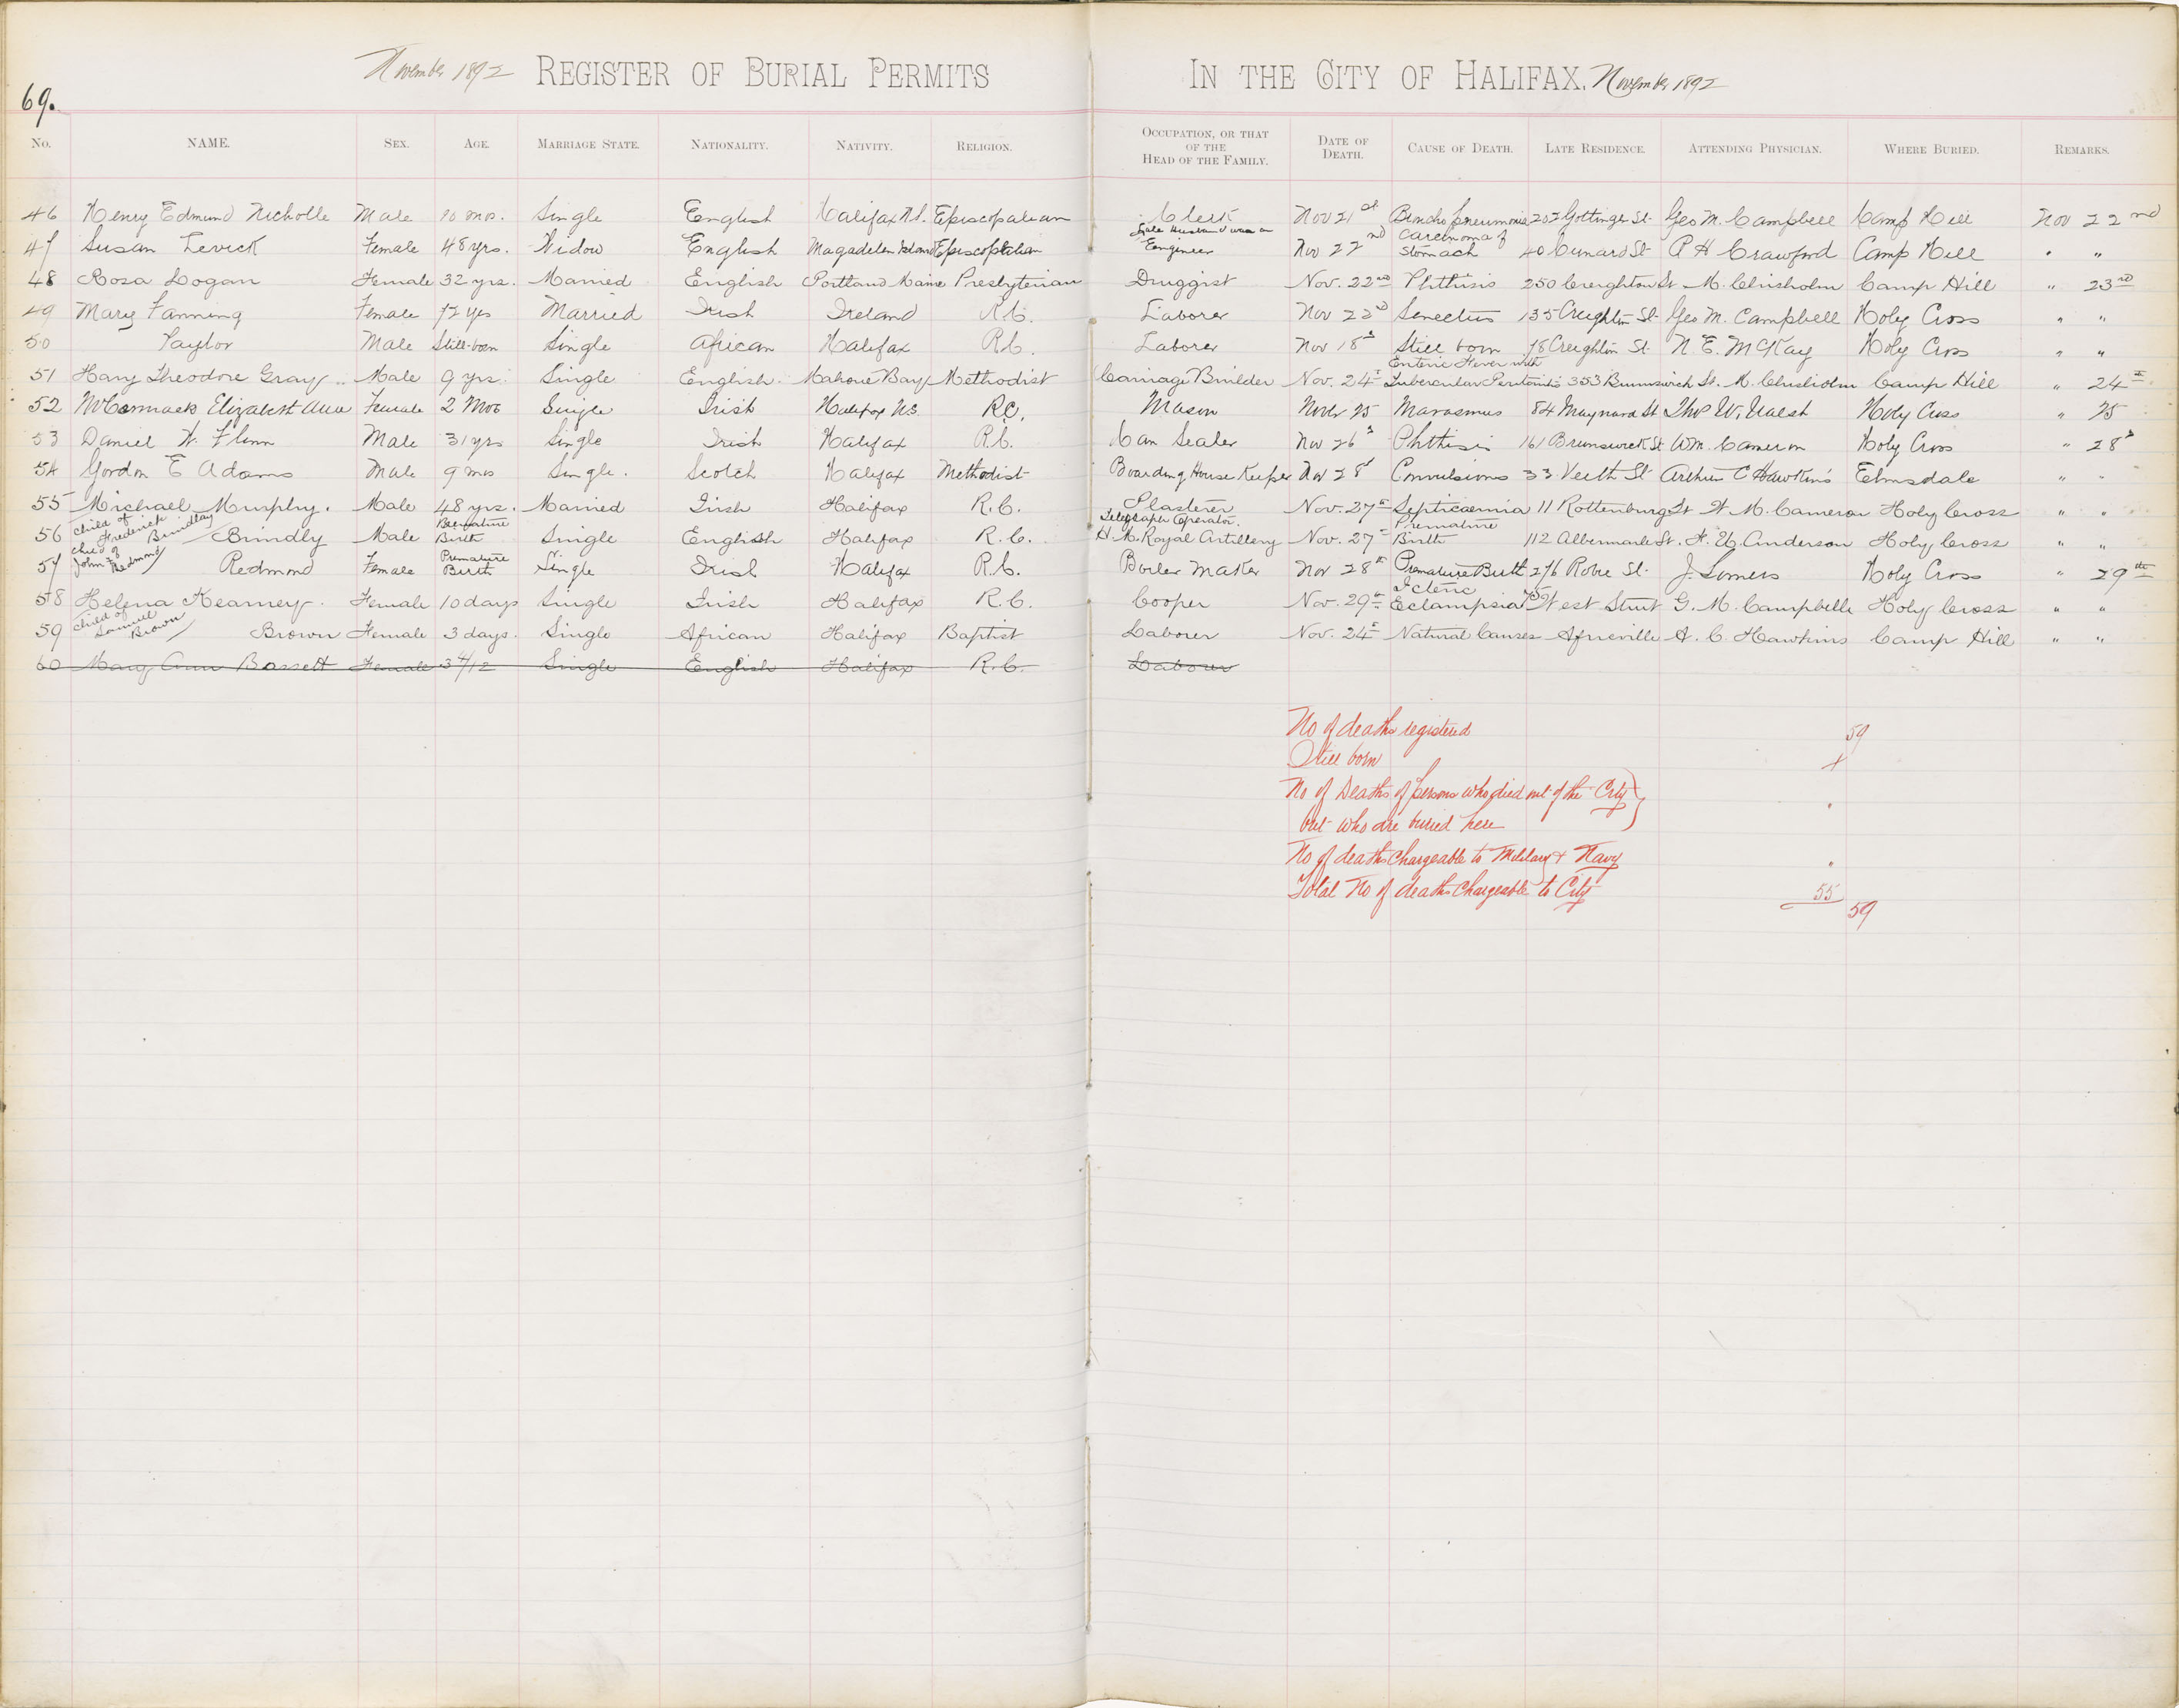 November 1892 REGISTER OF BURIAL PERMITS IN THE CITY OF HALIFAX. November 1892
69.
No. NAME. SEX. AGE. MARRIAGE STATE. NATIONALITY. NATIVITY. RELIGION. OCCUPATION, OR THAT OF THE HEAD OF THE FAMILY. DATE OF DEATH. CAUSE OF DEATH. LATE RESIDENCE. ATTENDING PHYSICIAN. WHERE BURIED. REMARKS.
46 Henry Edmund Nicholle Male 10 mos. Single English Halifax N.S. Episcopalian Clerk Nov 21st Broncho pneumonia 202 Gottingen St. Geo M. Campbell Camp Hill Nov 22nd
47 Susan Levick Female 48 yrs. Widow English Magadelen Island Episcopalian Late Husband was an Engineer Nov 22nd Carcinoma of Stomach 40 Cunard St A H Crawford Camp Hill " "
48 Rosa Logan Female 32 yrs. Married English Portland Maine Presbyterian Druggist Nov. 22nd Phthisis 250 Creighton St M. Chisholm Camp Hill " 23rd
49 Mary Fanning Female 72 yrs Married Irish Ireland R.C. Laborer Nov 22d Senectus 135 Creighton St. Geo M. Campbell Holy Cross " "
50 Taylor Male Still-born Single African Halifax R.C. Laborer Nov 18th Still born 78 Creighton St. N. E. McKay Holy Cross " "
51 Harry Theodore Gray Male 9 yrs. Single English. Mahone Bay Methodist Carriage Builder Nov. 24th Enteric Fever with Tubercular Peritonitis 353 Brunswick St. M. Chisholm Camp Hill " 24th
52 McCormack Elizabeth Ann Female 2 Mos Single Irish Halifax N.S. R.C. Mason Novr 25 Marasmus 84 Maynard St Thos W. Walsh Holy Cross " 25
53 Daniel W. Flinn Male 31 yrs Single Irish Halifax R.C. Can Sealer Nov 26th Phthisis 161 Brunswick St Wm. Cameron Holy Cross " 28th
54 Gordon E Adams Male 9 mos Single. Scotch Halifax Methodist Boarding House Keeper Nov 28th Convulsions 33 Veith St Arthur C Hawkins Elmsdale " "
55 Michael Murphy. Male 48 yrs. Married Irish Halifax R.C. Plasterer Nov. 27th Septicaemia 11 Rottenburg St W. M. Cameron Holy Cross " "
56 child of Frederick Brindley Brindly Male Premature Birth Single English Halifax R.C. Telegraph Operator. H. M. Royal Artillery Nov. 27th Premature Birth 112 Albermarle St. F. U. Anderson Holy Cross " "
57 child of John F Redmond Redmond Female Premature Birth Single Irish Halifax R.C. Boiler Maker Nov 28th Premature Birth 276 Robie St. J. Somers Holy Cross " 29th
58 Helena Kearney. Female 10 days Single Irish Halifax R.C. Cooper Nov. 29th Icteric Eclampsia West Street G. M. Campbelle Holy Cross " "
59 child of Samuel Brown Brown Female 3 days. Single African Halifax Baptist Laborer Nov. 24th Natural Causes Africville A. C. Hawkins Camp Hill " "
60 Mary Ann Bossett Female 3 4/12 Single English Halifax R.C. Laborer
No of deaths registered 59
Still born
No of Deaths of persons who died out of the City
but who are buried here "
No of deaths Chargeable to Military & Navy "
Total No of deaths Chargeable to City 55
59